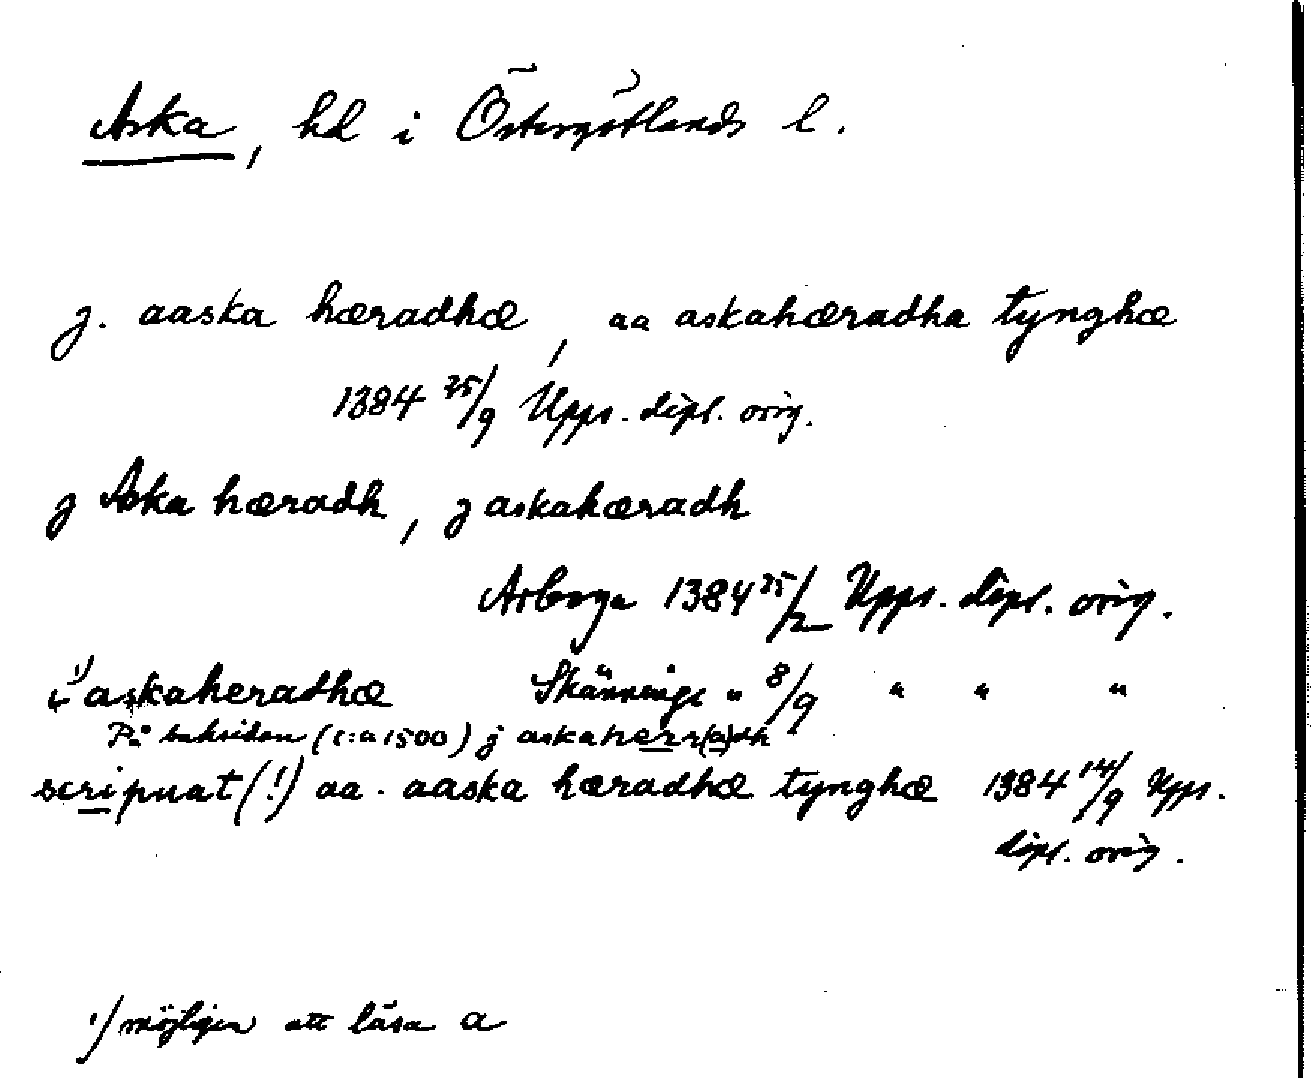 Aska, hd i Östergötlands l.
j. aaska hæradhæ, aa askahæradha tynghæ
1384 25/9 Upps. dipl. orig.
j Aska hæradh, j askahæradh
Arboga 1384 25/2 Upps. dipl. orig.
i 1) askaheradhæ Skänninge " 8/9 " " "
På baksidan (c:a 1500) j askaherr(a)dh
scripuat (!) aa. aaska hæradhæ tynghæ 1384 14/9 Upps.
dipl. orig.
1) möjligen att läsa a